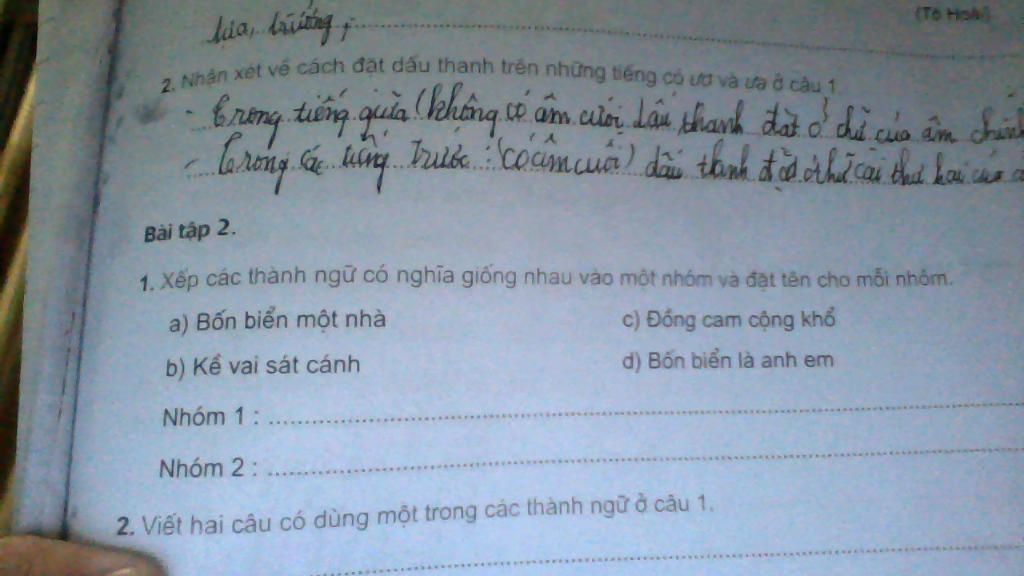 (Tô Hoài)
lúa,
2. Nhận xét về cách đặt dấu thanh trên những tiếng có ươ và ưa ở câu 1.
- Trong tiếng giữa (không có âm cuối dấu thanh đặt ở chữ của âm chính
- Trong các tiếng trước: (có âm cuối) dấu thanh đặt ở chữ cái thứ hai của
Bài tập 2.
1. Xếp các thành ngữ có nghĩa giống nhau vào một nhóm và đặt tên cho mỗi nhóm.
a) Bốn biển một nhà
c) Đồng cam cộng khổ
b) Kề vai sát cánh
d) Bốn biển là anh em
Nhóm 1 :
Nhóm 2 :
2. Viết hai câu có dùng một trong các thành ngữ ở câu 1.